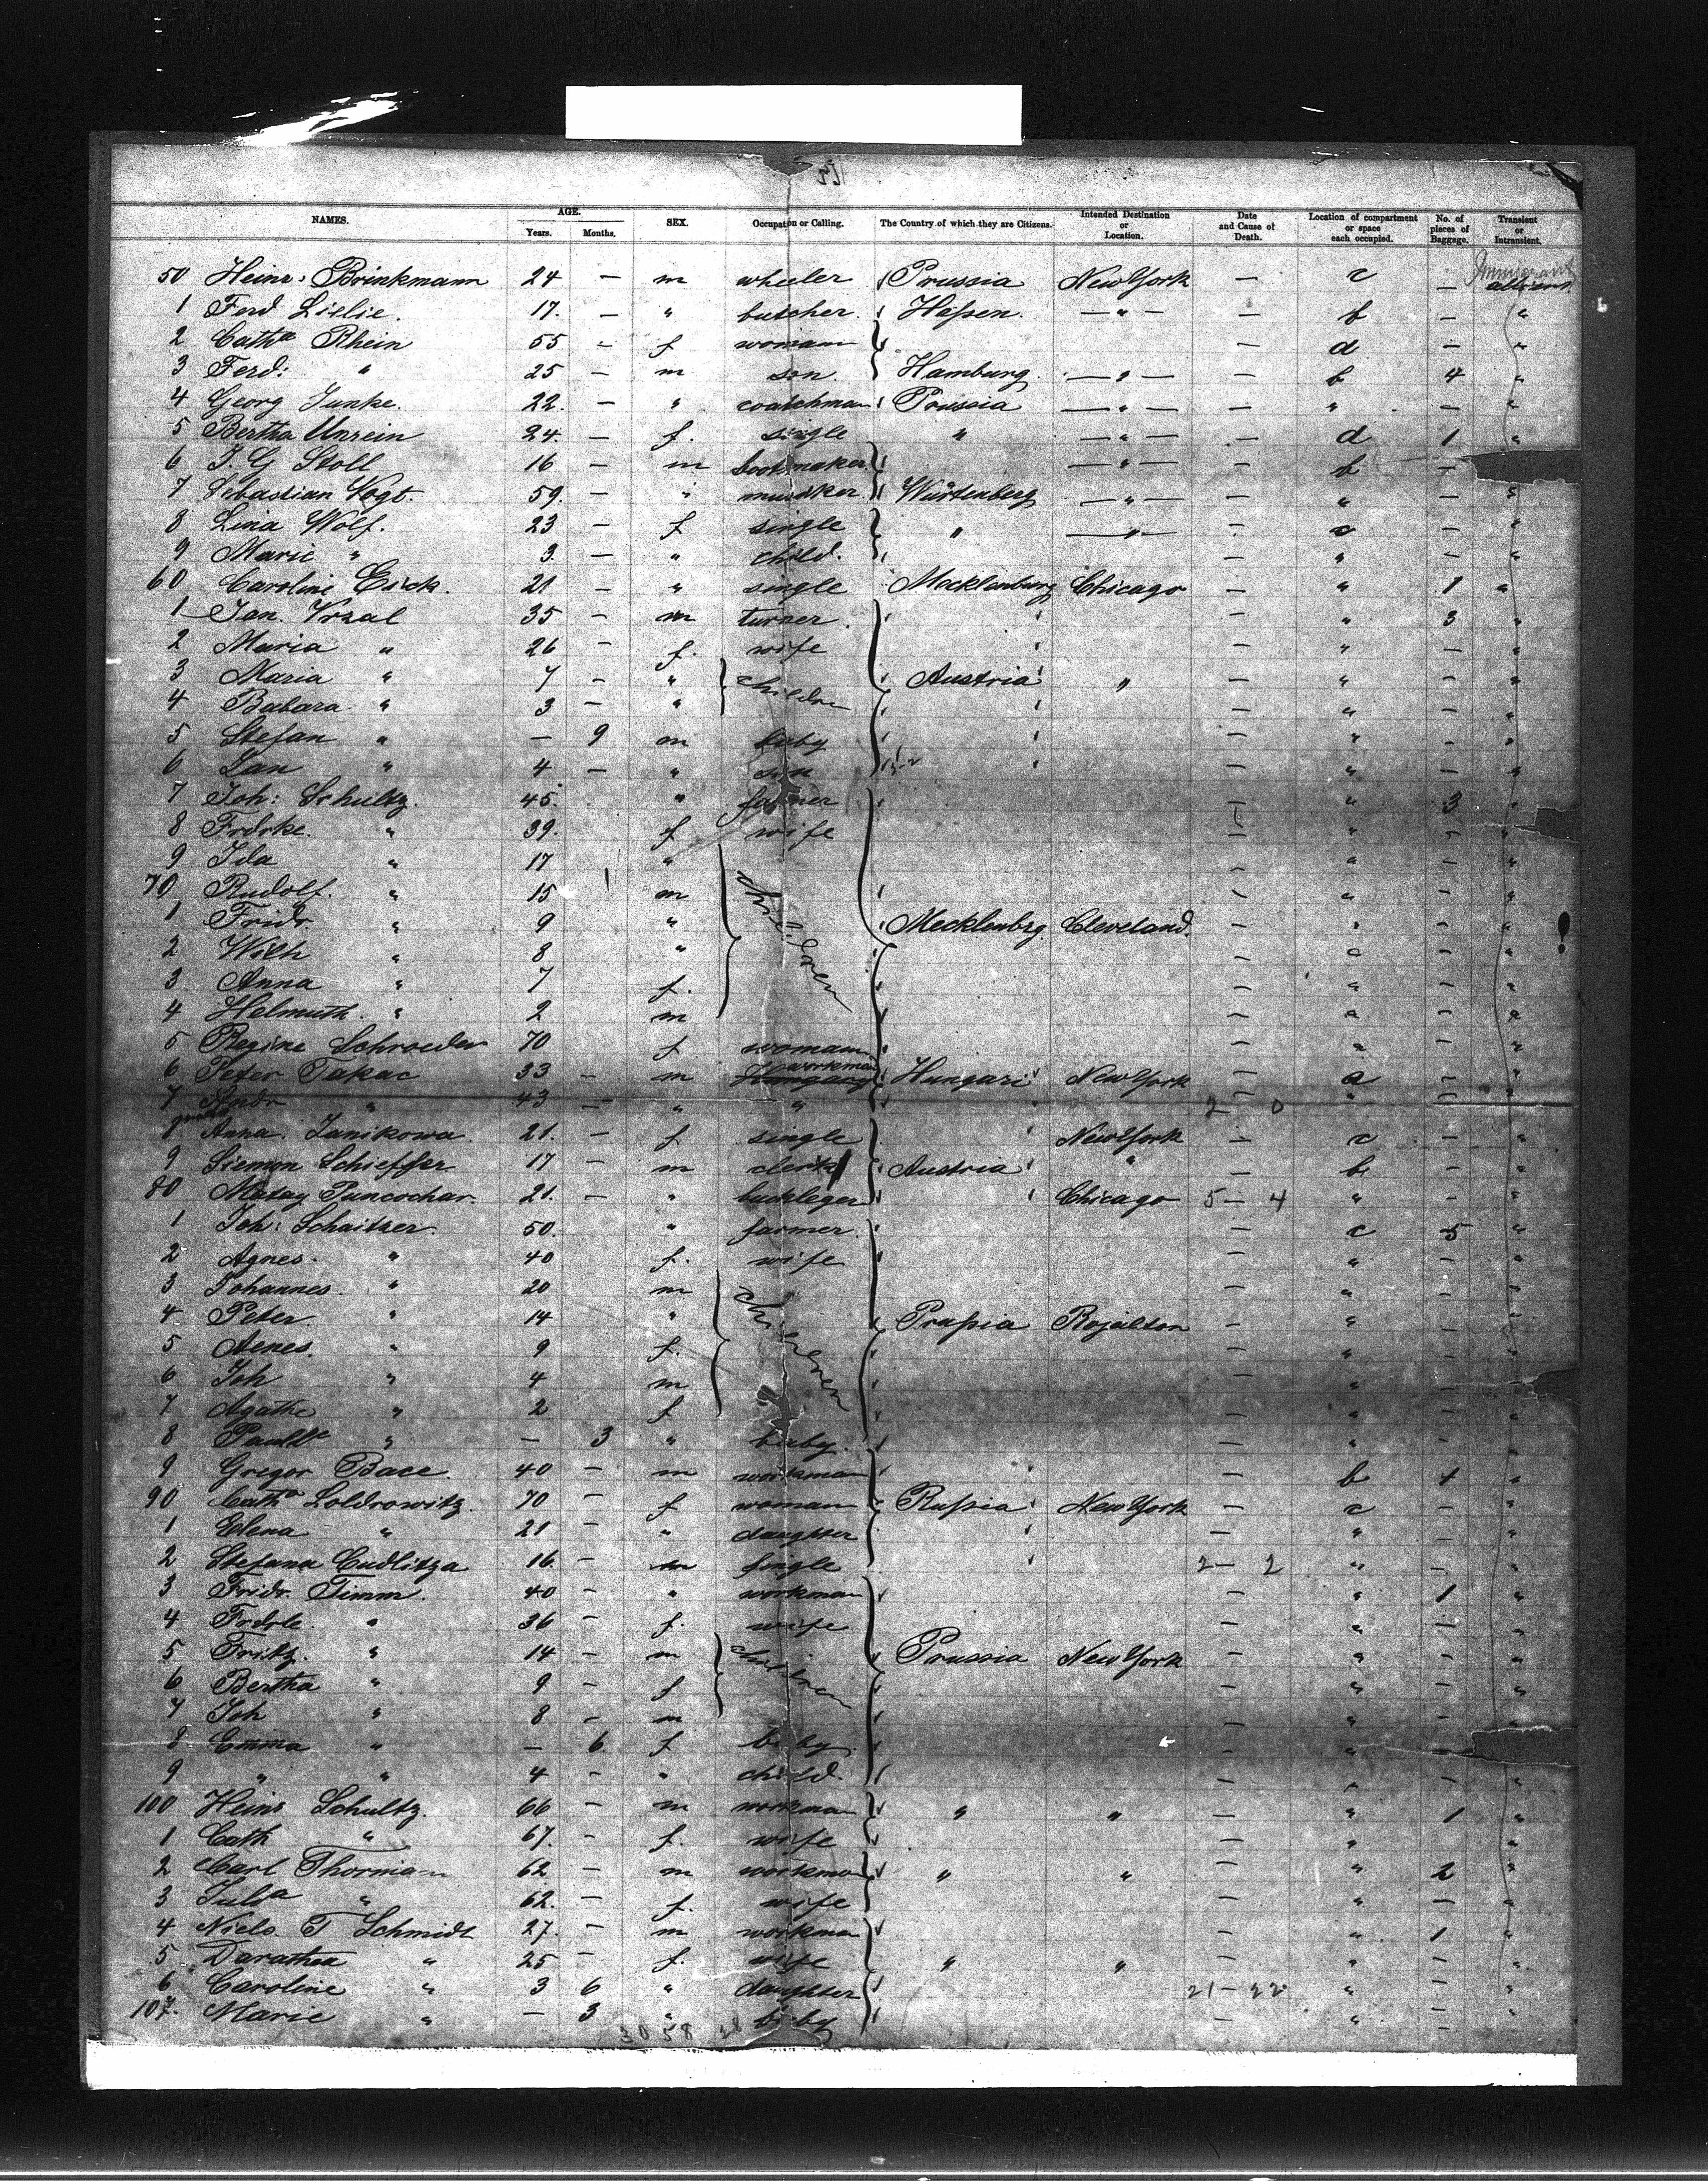 NAMES. AGE. Years. Months. SEX. Occupation or Calling. The Country of which they are Citizens. Intended Destination or Location. Date and Cause of Death. Location of compartment or space each occupied. No. of pieces of Baggage. Transient or Intransient.
50 Heinr: Brinkmann 24 — m wheeler Prussia New York — c —
1 Ferd Lielie. 17. — " butcher. Hessen. — " — — b — "
2 Catha Rhein 55 - f woman — d — "
3 Ferd: " 25 — m son. Hamburg. — " — — b 4 "
4 Georg Junke. 22. — " coatchman Prussia — " — — " — "
5 Bertha Unrein 24 — f. single " — " — — d 1 "
6 J. G Stoll 16 — m bootmaker — " — — b —
7 Sebastian Vogt. 59. — " Würtenberg — " — — " — "
8 Lina Wolf. 23 — f single " — " — - c — "
9 Marie " 3. — " child. " — "
60 Caroline 21 — " single Mecklenburg Chicago — " 1 "
1 Jan. Vrzal 35 — m turner. — " 3 "
2 Maria " 26 — f. wife — " — "
3 Maria " 7 — " children Austria " — " — "
4 Babara " 3 — " — " — "
5 Stefan " — 9 m baby — " - "
6 Jan " 4 — " son — " — "
7 Joh: Schultz. 45. " farmer — " 3 "
8 Frdrke. " 39. f wife — " - "
9 Ida " 17 " — " — "
70 Rudolf. " 15 m children — " — "
1 Fridr. " 9 " Mecklenbrg. Cleveland. — " - "
2 Wilh " 8 " — " — "
3. Anna " 7 f. — " — "
4 Helmuth. " 2 m — " — "
5 Regine Schroeder 70 f woman — " — "
6 Peter Takac 33 — m Hungary workman Hungari New York — a — "
7 Andr " 43 — " " 2 0 " — "
8 Anna. Janikowa. 21. — f single New York — c - "
9 Siemon Schieffer 17 — m clerk Austria " — b — "
80 Matay Puncochar. 21. — " Chicago 5 — 4 " - "
1 Joh: Schaitzer. 50. " farmer. — c 5 "
2 Agnes. " 40 f. wife — " — "
3 Johannes. " 20 m children — " — "
4 Peter " 14 " Prussia Rojalton — " — "
5 Agnes. " 9 f. — " — "
6 Joh " 4 m — " — "
7 Agathe " 2 f — " — "
8 " — 3 " baby. — " — "
9 Gregor Bace. 40 — m workman — b 1 "
90 Catha Loldrowitz. 70 — f woman Russia New York — c — "
1 Elena " 21 — " daughter — " — "
2 Stefana Cudlitza 16. — m single 2 — 2 " — "
3 Fridr. Timm. 40 — " workman — " 1 "
4 Frdrle. " 36 — f. wife — " — "
5 Fritz. " 14 — m children Prussia New York — " — "
6 Bertha " 9 — f — " — "
7 Joh " 8 — m — " — "
8 Emma " — 6. f baby — " —
9 " " 4 — " child. — " — "
100 Heinr Schultz. 66 — m workman " " — " 1 "
1 Cath " 67. — f. wife — " "
2 Carl Thormann 62 — m workman " " — " 2 "
3 Jula " 62. — f. wife — " — "
4 Niels. T Schmidt 27. — m workman — " 1 "
5 Darathea " 25 — f. wife " " — " - "
6 Caroline " 3 6 " daughter 21 — 22 " — "
107. Marie " — 3 " baby — " — "